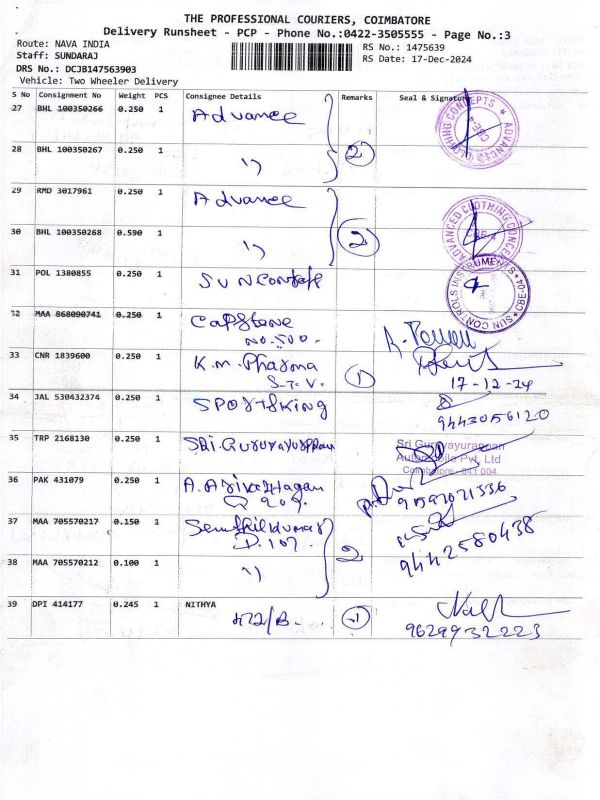 THE PROFESSIONAL COURIERS, COIMBATORE
Delivery Runsheet - PCP - Phone No.:0422-3505555 - Page No.:3
Route: NAVA INDIA
RS No.: 1475639
Staff: SUNDARAJ
RS Date: 17-Dec-2024
DRS No.: DCJB147563903
Vehicle: Two Wheeler Delivery
S No Consignment No Weight PCS Consignee Details Remarks Seal & Signature
27 BHL 100350266 0.250 1 Advance
28 BHL 100350267 0.250 1 11 2
29 RMD 3017961 0.250 1 Advance
30 BHL 100350268 0.590 1 11 2
31 POL 1380855 0.250 1
32 MAA 868090741 0.250 1 Capstone
NO. 500.
33 CNR 1839600 0.250 1 K.M. Pharma
S.T.V. 1
17-12-24
34 JAL 530432374 0.250 1 SPORTSKING
9443056120
35 TRP 2168130 0.250 1 Sri. Guruvayurappan
Sri Guruvayurappan
Automobile Pvt. Ltd
Coimbatore - 641 004
36 PAK 431079 0.250 1 A. Arivazhagan
37 MAA 705570217 0.150 1 Senthilkumar
D. 107.
9442580438
38 MAA 705570212 0.100 1 11 2
39 DPI 414177 0.245 1 NITHYA
472/B. 1
9629932223